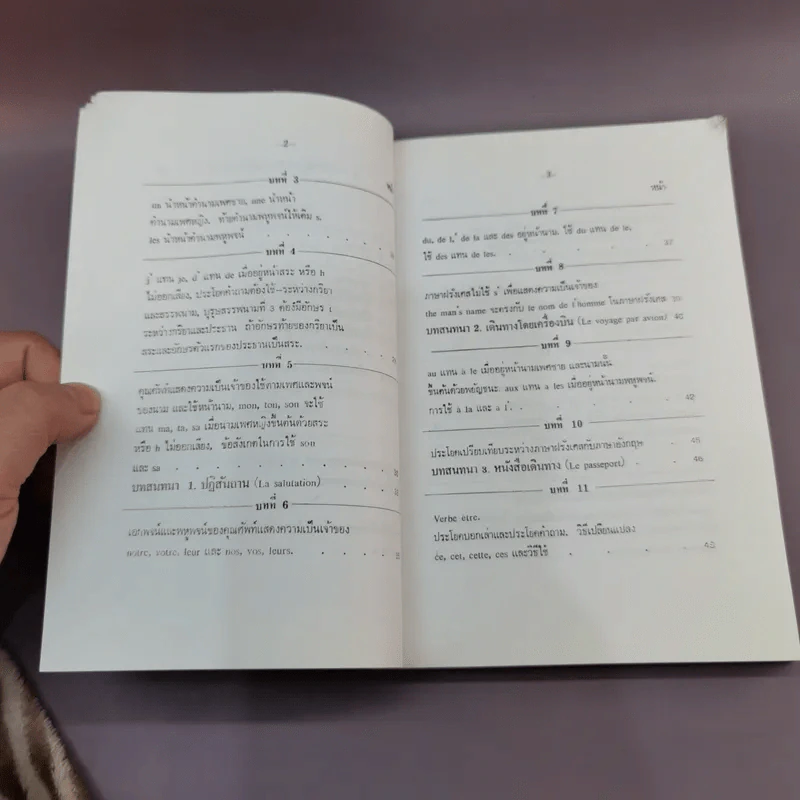 -2-
บทที่ 3
un นำหน้าคำนามเพศชาย, une นำหน้า
คำนามเพศหญิง. ท้ายคำนามพหูพจน์ให้เติม s.
les นำหน้าคำนามพหูพจน์
บทที่ 4
j' แทน je, d' แทน de เมื่ออยู่หน้าสระ หรือ h
ไม่ออกเสียง, ประโยคคำถามต้องใช้-ระหว่างกริยา
และสรรพนาม, บุรุษสรรพนามที่ 3 ต้องมีอักษร t
ระหว่างกริยาและประธาน ถ้าอักษรท้ายของกริยาเป็น
สระและอักษรตัวแรกของประธานเป็นสระ.
บทที่ 5
คุณศัพท์แสดงความเป็นเจ้าของใช้ตามเพศและพจน์
ของนาม และใช้หน้านาม, mon, ton, son จะใช้
แทน ma, ta, sa เมื่อนามเพศหญิงขึ้นต้นด้วยสระ
หรือ h ไม่ออกเสียง, ข้อสังเกตในการใช้ son
และ sa
บทสนทนา 1. ปฏิสันถาน (La salutation)
บทที่ 6
เอกพจน์และพหูพจน์ของคุณศัพท์แสดงความเป็นเจ้าของ
notre, votre, leur และ nos, vos, leurs.
-3-
หน้า
บทที่ 7
du, de l,' de la และ des อยู่หน้านาม. ใช้ du แทน de le,
ใช้ des แทน de les. 37
บทที่ 8
ภาษาฝรั่งเศสไม่ใช้ s' เพื่อแสดงความเป็นเจ้าของ
the man's name จะตรงกับ le nom de l'homme ในภาษาฝรั่งเศส
บทสนทนา 2. เดินทางโดยเครื่องบิน (Le voyage par avion) 40
บทที่ 9
au แทน à le เมื่ออยู่หน้านามเพศชาย และนามนั้น
ขึ้นต้นด้วยพยัญชนะ. aux แทน à les เมื่ออยู่หน้านามพหูพจน์.
การใช้ à la และ à l'. 42
บทที่ 10
ประโยคเปรียบเทียบระหว่างภาษาฝรั่งเศสกับภาษาอังกฤษ 45
บทสนทนา 3. หนังสือเดินทาง (Le passeport) 46
บทที่ 11
Verbe être.
ประโยคบอกเล่าและประโยคคำถาม. วิธีเปลี่ยนแปลง
ce, cet, cette, ces และวิธีใช้ 48